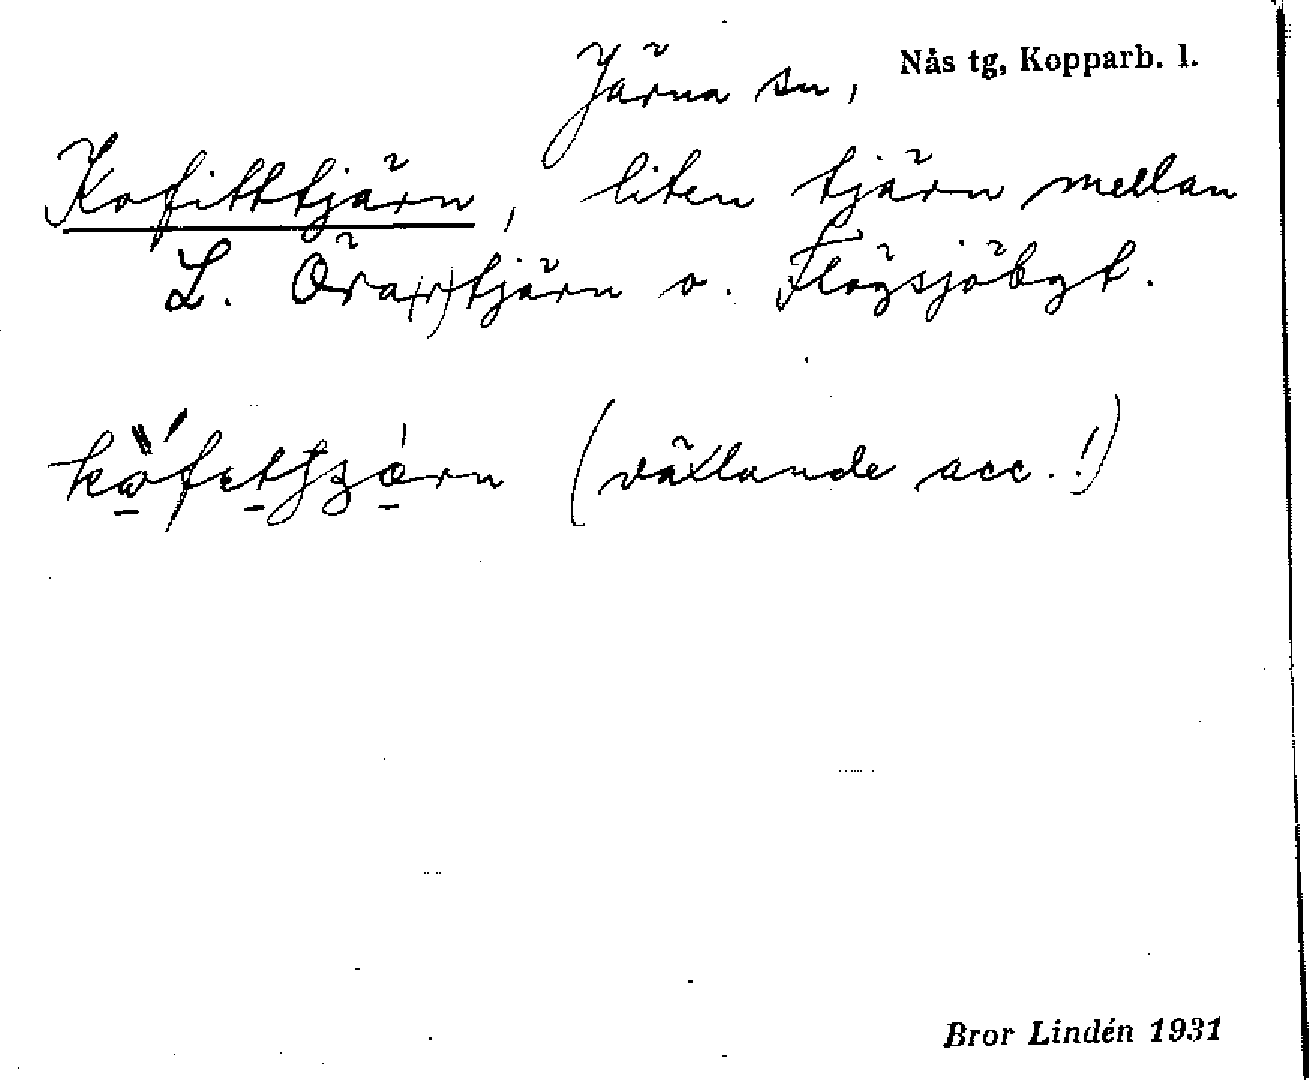 Järna sn, Nås tg, Kopparb. l.
Kofittjärn, liten tjärn mellan
L. Öra(r)tjärn o. Flögsjöbgt.
(växlande acc.!)
Bror Lindén 1931